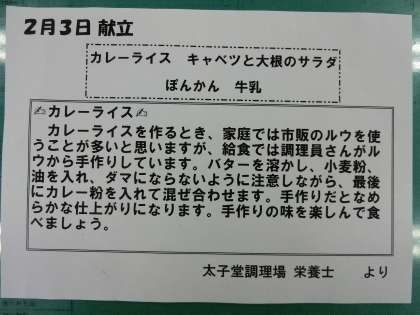 2月3日 献立
カレーライス　キャベツと大根のサラダ
ぽんかん　牛乳
✍カレーライス✍
　カレーライスを作るとき、家庭では市販のルウを使
うことが多いと思いますが、給食では調理員さんがル
ウから手作りしています。バターを溶かし、小麦粉、
油を入れ、ダマにならないように注意しながら、最後
にカレー粉を入れて混ぜ合わせます。手作りだとなめ
らかな仕上がりになります。手作りの味を楽しんで食
べましょう。
太子堂調理場 栄養士　　より